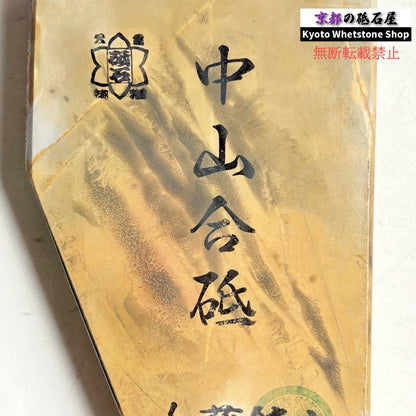 京都の砥石屋
Kyoto Whetstone Shop
無断転載禁止
砥石
中山合砥